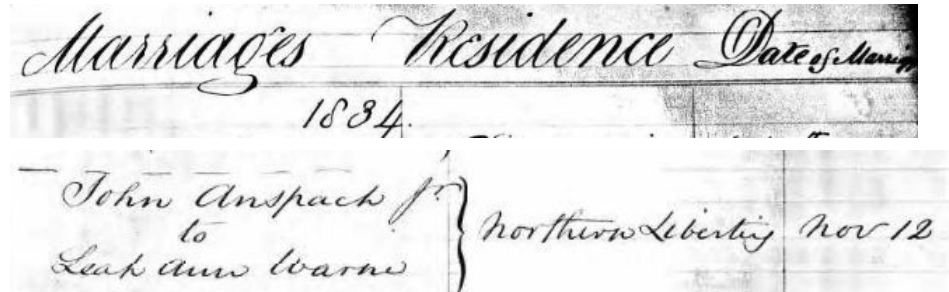 Marriages Residence Date of Marriag
1834.
John Anspach Jr.
to
Leah Ann Warne
Northern Liberties
Nov 12